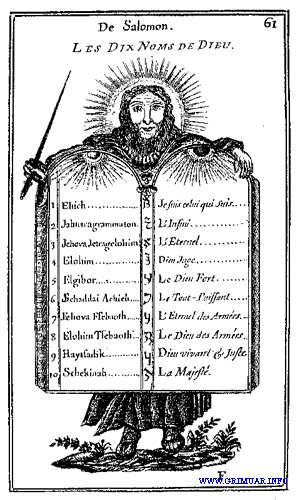 De Salomon. 61
LES DIX NOMS DE DIEU.
1 Ehich............ Je suis celui qui suis....
2 Jahtetragrammaton. L'Infini............
3 Jehova Jetragelohim L'Eternel............
4 Elohim............ Dieu Juge............
5 Elgibor............ Le Dieu Fort............
6 Schaddai Achich... Le Tout-Puissant.......
7 Jehova Tsebaoth... L'Eternel des Armées.
8 Elohim Tsebaoth... Le Dieu des Armées.
9 Haytsadik......... Dieu vivant & Juste.
10 Schekinah......... La Majesté.
F
WWW.GRIMUAR.INFO